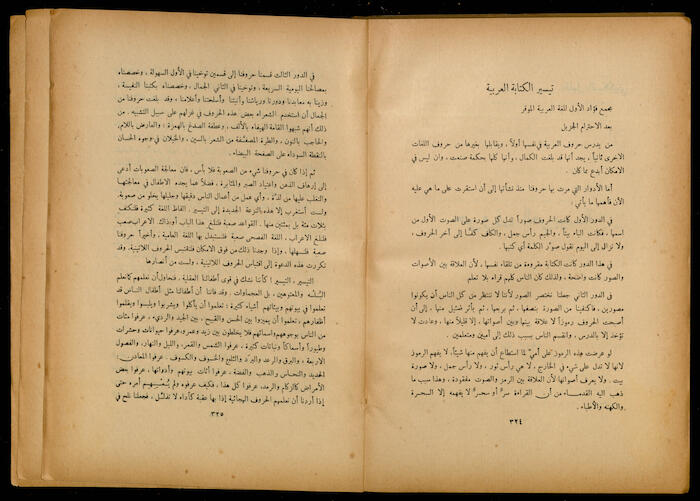 تيسير الكتابة العربية
مجمع فؤاد الأول للغة العربية الموقر
بعد الاحترام الجزيل
من يدرس حروف العربية في نفسها أولاً، ويقابلها بغيرها من حروف اللغات
الاخرى ثانياً، يجد أنها قد بلغت الكمال، وأنها كلها بحكمة صنعت، وان ليس في
الامكان أبدع مما كان.
أما الأدوار التي مرت بها حروفنا منذ نشأتها إلى أن استقرت على ما هي عليه
الآن فأهمها ما يأتي:
في الدور الأول كانت الحروف صوراً تدل كل صورة على الصوت الأول من
اسمها، فكانت الباء بيتاً، والجيم رأس جمل، والكف كفًّا إلى آخر الحروف،
ولا تزال إلى اليوم نقول صوّر الكلمة أي كتبها.
في هذا الدور كانت الكتابة مقروءة من تلقاء نفسها، لأن العلاقة بين الأصوات
والصور كانت واضحة، ولذلك كان الناس كلهم قراء بلا تعلم
في الدور الثاني جعلنا نختصر الصور لأننا لا ننتظر من كل الناس أن يكونوا
مصورين، فاكتفينا من الصورة بنصفها، ثم بربعها، ثم بأثر ضئيل منها، إلى أن
أصبحت الحروف رموزاً لا علاقة بينها وبين أصواتها، إلا قليلاً منها، وعادت لا
تؤخذ إلا بالدرس، وانقسم الناس بسبب ذلك إلى أميين ومتعلمين.
لو عرضت هذه الرموز على أميّ لما استطاع أن يفهم منها شيئاً، لا يفهم الرموز
لانها لا تدل على شيء في الخارج، لا هي رأس ثور، ولا رأس جمل، ولا صورة
بيت. ولا يعرف أصواتها لأن العلاقة بين الرمز والصوت مفقودة، وهذا سبب ما
ذهب اليه القدماء من أن القراءة سرٌّ أو سحرٌ لا يفهمه إلا السحرة
والكهنة والأطباء.
٣٢٤
في الدور الثالث قسمنا حروفنا إلى قسمين توخينا في الأول السهولة، وخصصناه
بمصالحنا اليومية السريعة، وتوخينا في الثاني الجمال، وخصصناه بكتبنا النفيسة،
وزينا به معابدنا ودورنا ورياشنا وآنيتنا وأسلحتنا وأعلامنا، وقد بلغت حروفنا من
الجمال أن استخدم الشعراء بعض هذه الحروف في غزلهم على سبيل التشبيه. من
ذلك أنهم شبهوا القامة الهيفاء بالألف، وعطفة الصدغ بالهمزة، والعارض باللام،
والحاجب بالنون، والطرة المصففة من الشعر بالسين، والخيلان في وجوه الحسان
بالنقطة السوداء على الصفحة البيضاء.
ثم إذا كان في حروفنا شيء من الصعوبة فلا بأس، فان معالجة الصعوبات أدعى
إلى إرهاف الذهن واعتياد الصبر والمثابرة، فضلاً عما يجده الاطفال في معالجتها
والتغلب عليها من لذة، وأي عمل من أعمال الناس دقيقها وجليلها يخلو من صعوبة.
ولست أستغرب إلا هذه النزعة الجديدة إلى التيسير. الفاظ اللغة كثيرة فلنكتف
بثلاث مئة بل بمئتين منها. القواعد صعبة فلنلغ هذا الباب أو ذاك. الاعراب صعب
فلنلغ الاعراب، اللغة الفصحى صعبة فلنستبدل بها اللغة العامية، وأخيراً حروفنا
صعبة فلنسهلها، وإذا وجدنا ذلك من فوق الامكان فلنقتبس الحروف اللاتينية. وقد
تكررت هذه الدعوة إلى اقتباس الحروف اللاتينية، ولست من أنصارها
التيسير، التيسير! كأننا نشك في قوى أطفالنا العقلية، فنحاول أن نعلمهم كما نعلم
البُلْه والمعتوهين، بل العجماوات. وقد فاتنا أن أطفالنا مثل أطفال الناس قد
تعلموا في بيوتهم وبيئاتهم أشياء كثيرة: تعلموا أن يأكلوا ويشربوا ويلبسوا ويقلموا
أظفارهم، تعلموا أن يميزوا بين الحسن والقبيح، بين الجيد والرديء، عرفوا مئات
من الناس بوجوههم وأسمائهم فلا يخلطون بين زيد وعمرو، عرفوا حيوانات وحشرات
وطيوراً وأسماكاً ونباتات كثيرة. عرفوا الشمس والقمر، والليل والنهار، والفصول
الاربعة، والبرق والرعد والبرَد والثلج والخسوف والكسوف. عرفوا المعادن:
الحديد والنحاس والذهب والفضة. عرفوا أثاث بيوتهم وأدواتها، عرفوا بعض
الأمراض كالزكام والرمد، عرفوا كل هذا، فكيف عرفوه ولم يُعْيِهم أمره حتى
إذا أردنا أن نعلمهم الحروف الهجائية إذا بها عقبة كأداء لا تذلل، فجعلنا نلح في
٣٢٥